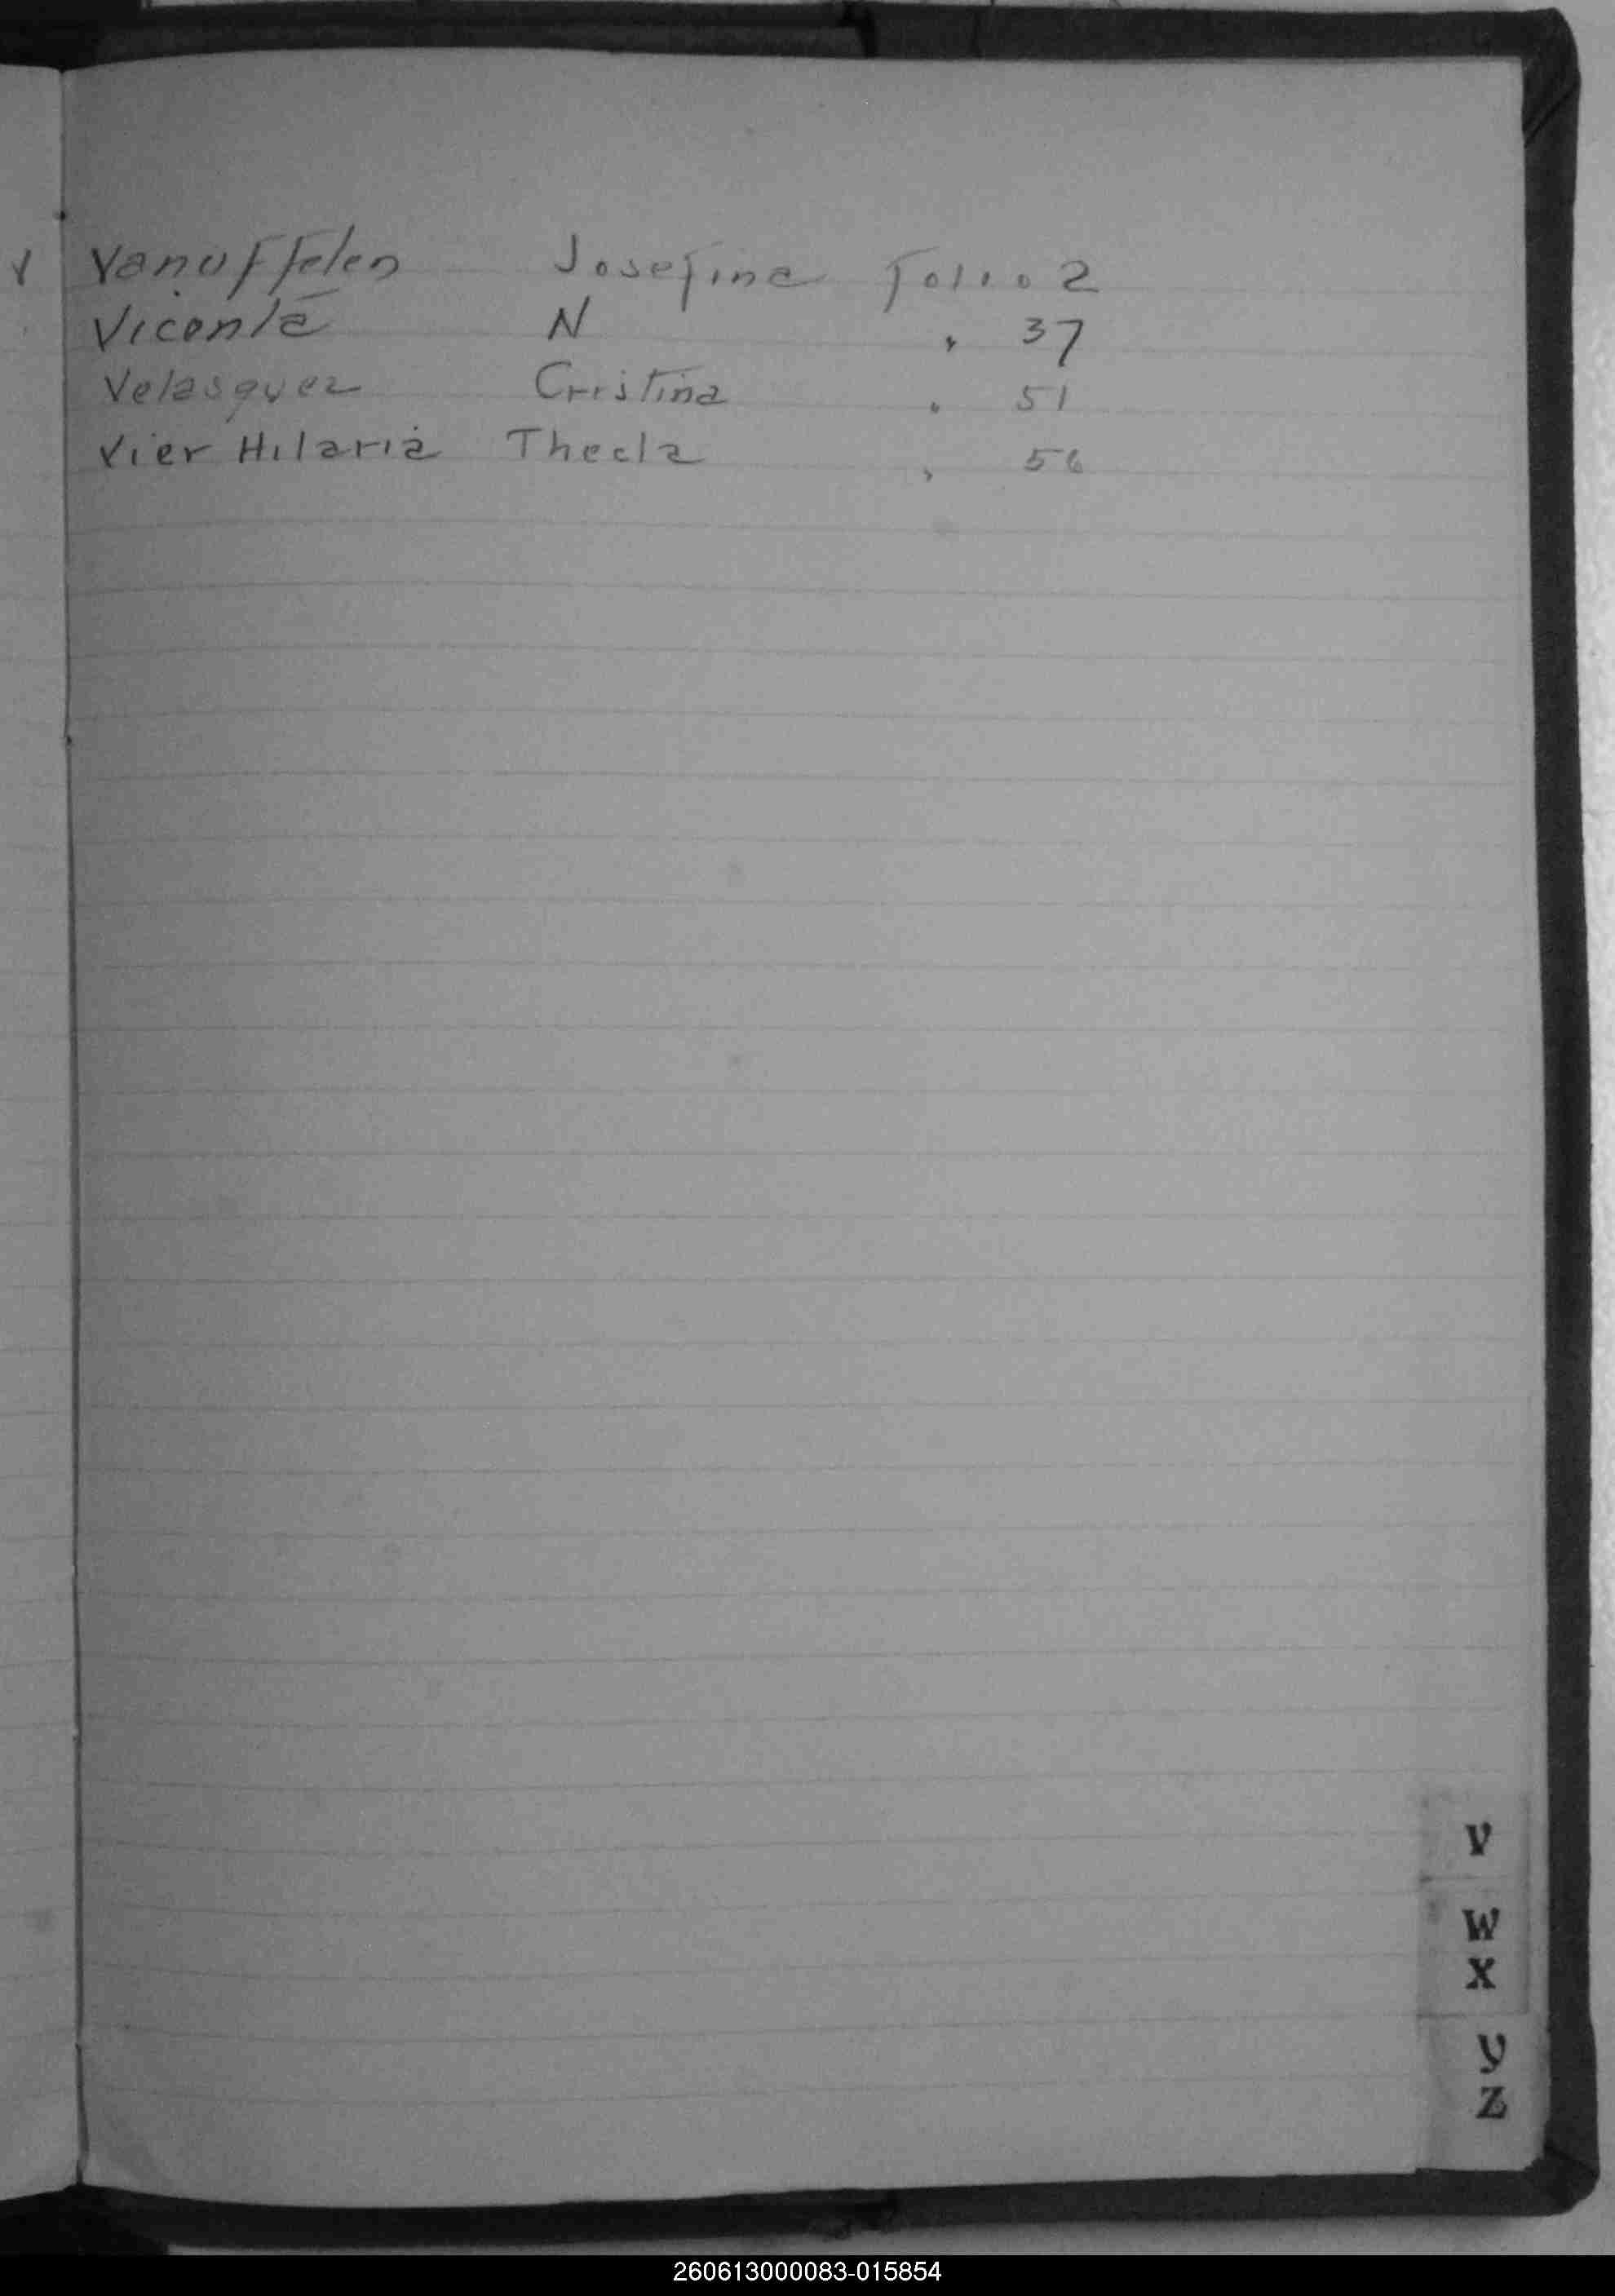 Vanuffelen Josefina Folio 2
Vicenta N " 37
Velasquez Cristina " 51
Vier Hilaria Thecla " 56
V
W
X
y
Z
260613000083-015854